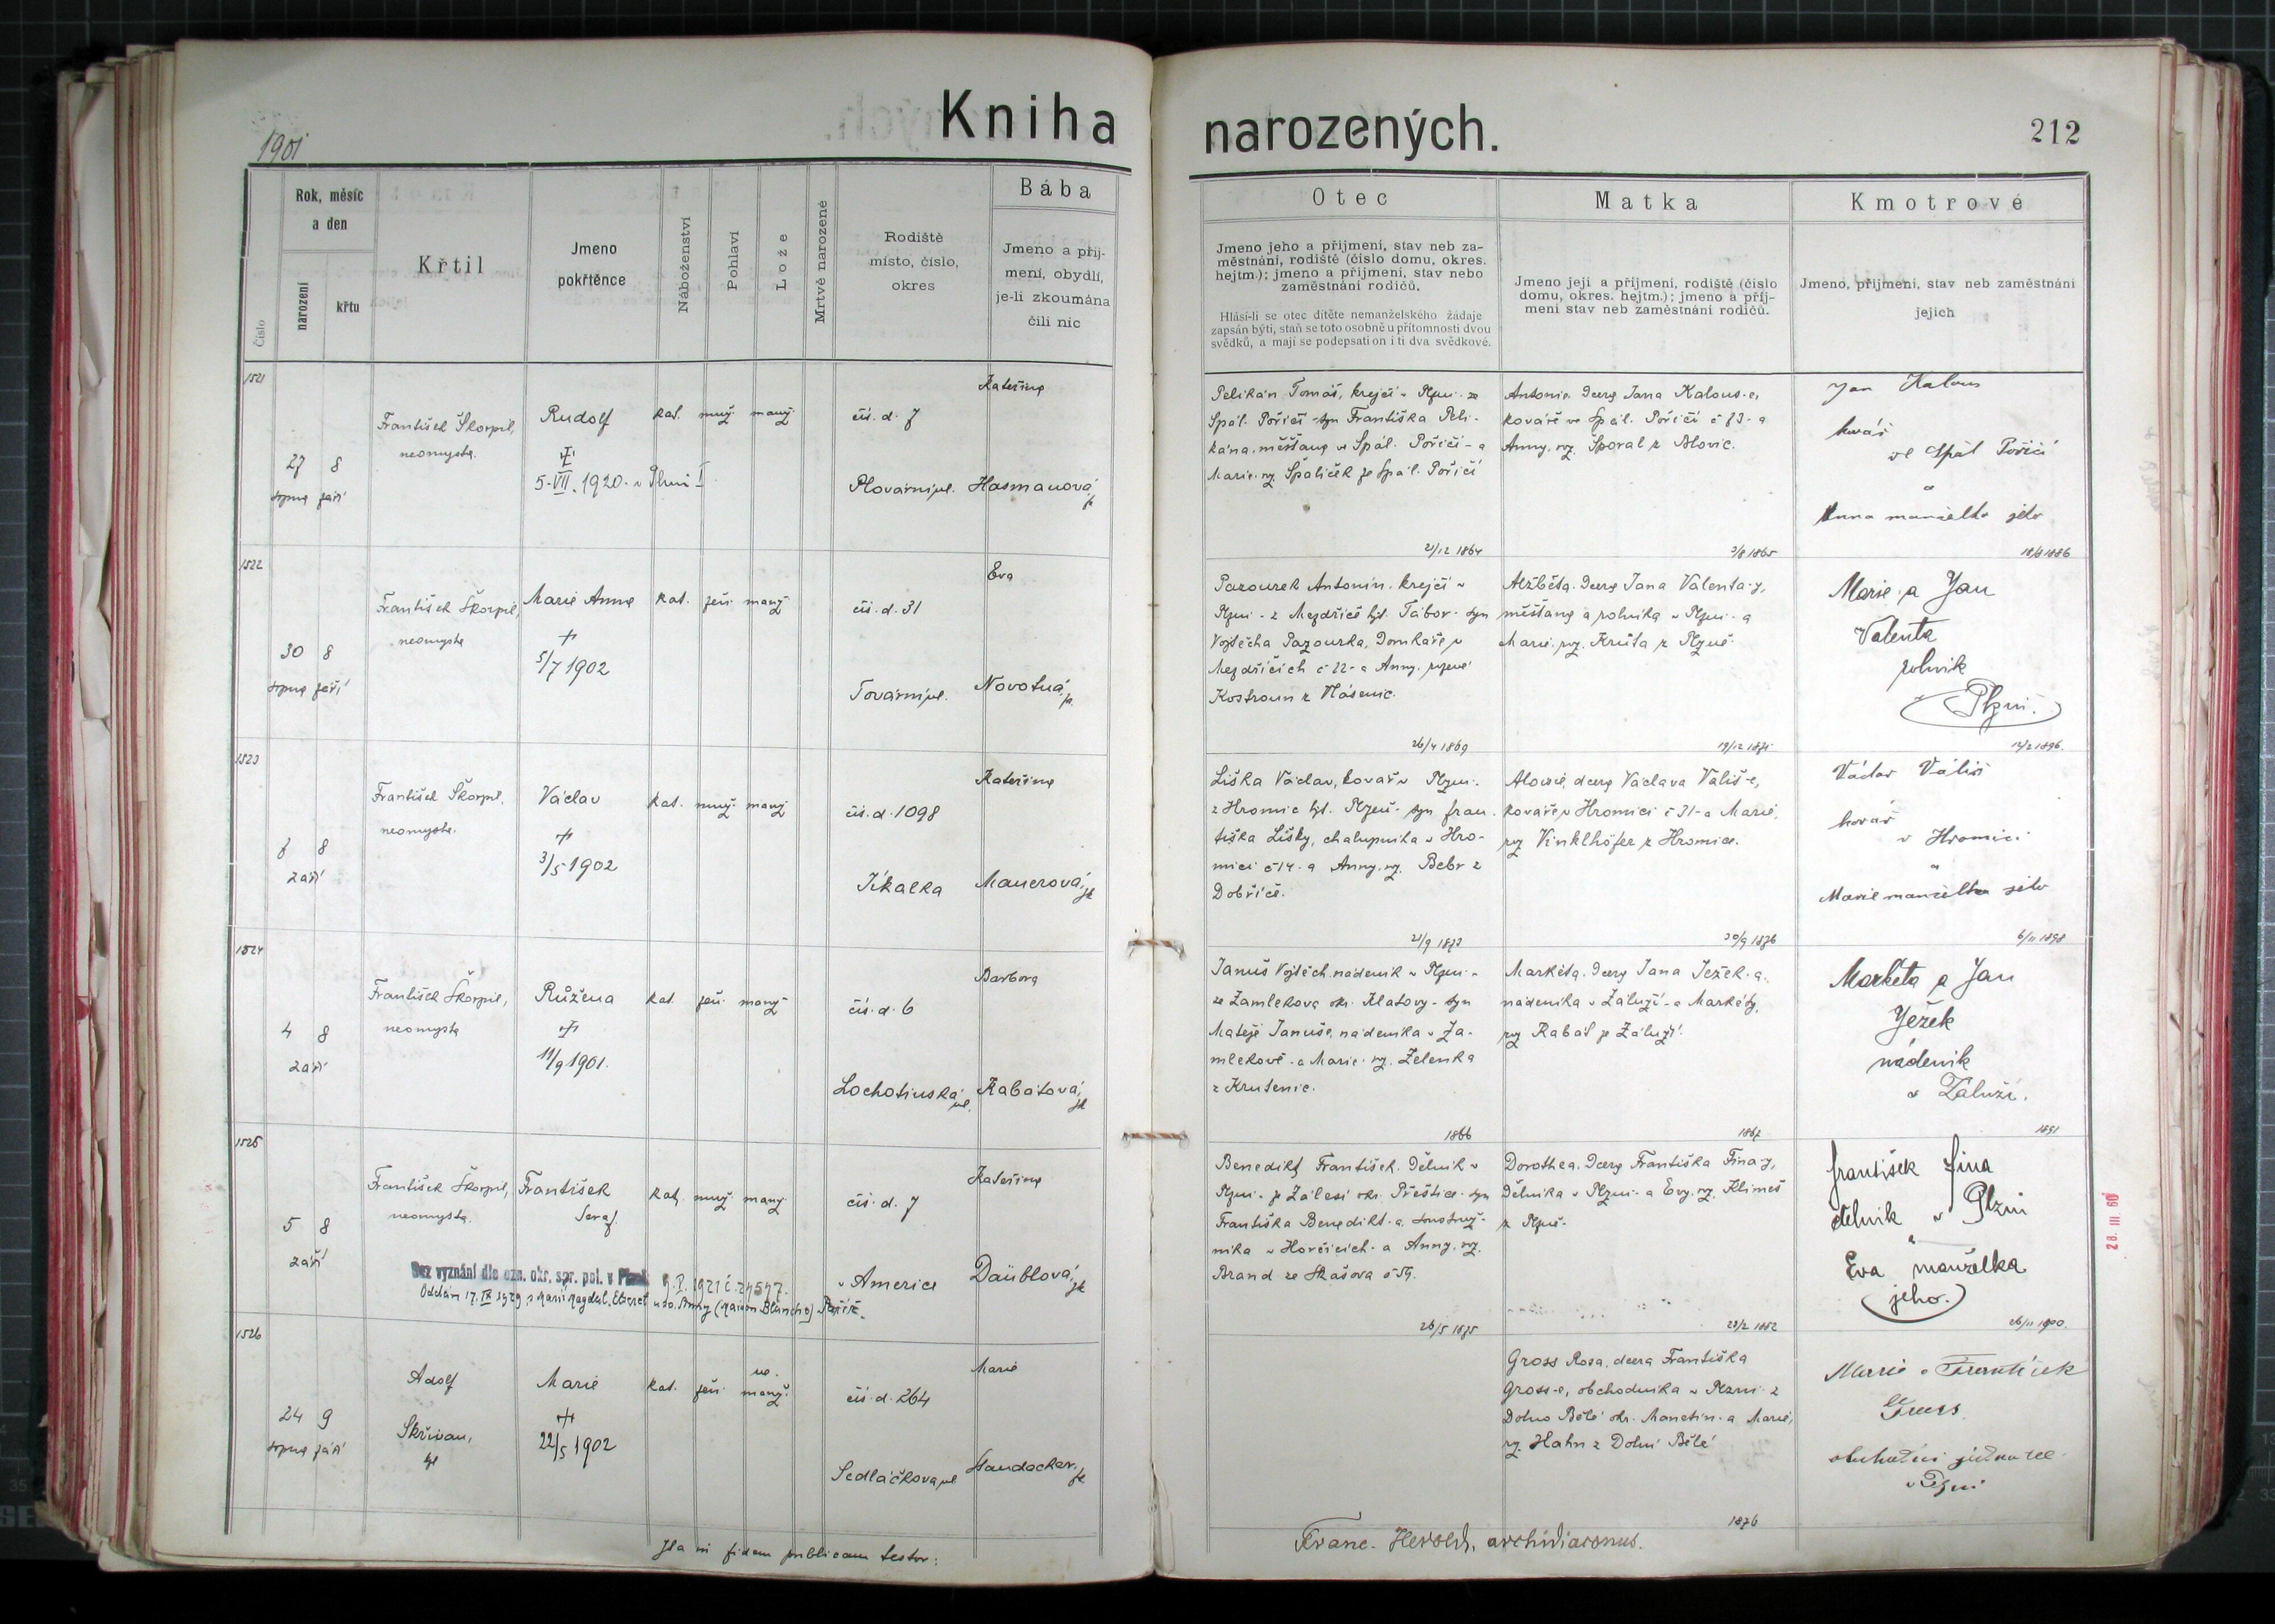 Kniha
narozených.
212
1901
Číslo
Rok, měsíc
a den
narození
křtu
Křtil
Jmeno
pokřtěnce
Náboženství
Pohlaví
Lože
Mrtvě narozené
Rodiště
místo, číslo,
okres
Bába
Jmeno a příj-
mení, obydlí,
je-li zkoumána
čili nic
Otec
Jmeno jeho a příjmení, stav neb za-
městnání, rodiště (číslo domu, okres.
hejtm.); jmeno a příjmení, stav nebo
zaměstnání rodičů.
Hlásí-li se otec dítěte nemanželského žádaje
zapsán býti, staň se toto osobně u přítomnosti dvou
svědků, a mají se podepsati on i ti dva svědkové.
Matka
Jmeno její a příjmení, rodiště (číslo
domu, okres. hejtm.); jmeno a příj-
mení stav neb zaměstnání rodičů.
Kmotrové
Jmeno, příjmení, stav neb zaměstnání
jejich
1521
27 8
srpna září
František Škorpil,
neomysta.
Rudolf
5. VII. 1920. v Plzni I
kat. muž. manž.
čís. d. 7
Plovární ul.
Kateřina
Hasmanová
Pelikán Tomáš, krejčí v Plzni. ze
Spál. Poříčí - syn Františka Peli-
kána. měšťana v Spál. Poříčí - a
Marie. rz. Špalíček ze Spál. Poříčí
21/12 1864
Antonie. dcera Jana Kalous-e,
kováře ve Spál. Poříčí č 73 - a
Anny. roz. Šporal z Blovic.
3/8 1865
Jan Kalous
kovář
ve Spál Poříčí
a
Anna manželka jeho
1886
1522
30 8
srpna září
František Škorpil,
neomysta
Marie Anna
5/7 1902
kat. žen. manž.
čís. d. 31
Tovární ul.
Eva
Novotná
Pazourek Antonín. krejčí v
Plzni - z Mezdříče hjt. Tábor - syn
Vojtěcha Pazourka, domkáře v
Mezdříčích č 22 - a Anny. rozené
Kostroun z Vlásenic.
26/4 1869
Alžběta. dcera Jana Valenta-y,
měšťana a rolníka v Plzni - a
Marie. roz. Kruta z Plzně.
19/12 1871
Marie a Jan
Valenta
rolník
Plzni.
12/2 1896.
1523
8
září
František Škorpil,
neomysta.
Václav
3/5 1902
kat. muž. manž
čís. d. 1098
Jikalka
Kateřina
Mauerová
Liška Václav, kovář v Plzni.
z Hromic hjt. Plzeň - syn Fran-
tiška Lišky, chalupníka v Hro-
mici č 14. a Anny. roz. Bebr z
Dobříče.
21/9 1873
Aloisie, dcera Václava Vališ-e,
kováře v Hromici č 31 - a Marie,
roz Vinklhöfer z Hromice.
30/9 1876
Václav Vališ
kovář
v Hromici
a
Marie manželka jeho
6/11 1898
1524
4 8
září
František Škorpil,
neomysta
Růžena
11/9 1901.
kat. žen. manž
čís. d. 6
Lochotínská ul.
Barbora
Rabátová
Januš Vojtěch. nádeník v Plzni -
ze Zamlekova okr. Klatovy - syn
Matěje Januše, nádeníka v Za-
mlekově - a Marie. roz. Zelenka
z Krutenic.
1866
Markéta. dcera Jana Ježek-a.
nádeníka v Záluží - a Markéty,
roz Rabát ze Záluží.
1867
Markéta a Jan
Ježek
nádeník
v Záluží.
1891
1525
5 8
září
František Škorpil,
neomysta.
František
Seraf.
kat. muž. manž.
čís. d. 7
v Americe
Kateřina
Däublová
Bez vyznání dle ozn. okr. spr. pol. v Plzni 9. I. 1921 č. 24547.
Oddán 17. IX 1929 s Marií Magdal. u sv. Anny (Maison Blanche) Paříž.
Benedikt František. dělník v
Plzni - ze Zálesí okr. Přeštice - syn
Františka Benedikt-a.
níka v Horčicích - a Anny. roz.
Brand ze Skašova č 59.
26/5 1875
Dorothea. dcera Františka Fina-y,
dělníka v Plzni - a Evy. roz. Klimeš
z Plzně.
František Fina
dělník v Plzni
a
Eva manželka
jeho.
26/11 1900.
28. III. 60
1526
24 9
srpna září
Adolf
Skřivan,
Marie
22/5 1902
kat. žen. ne. manž.
čís. d. 264
Sedláčkova ul
Marie
Gross Rosa, dcera Františka
Gross-e, obchodníka v Plzni z
Dolno Bělé okr. Manetín - a Marie,
roz. Hahn z Dolní Bělé
1876
Marie a František
Gross
obchodní jednatel
v Plzni
Ita in fidem publicam testor:
Franc. Herold, archidiaconus.